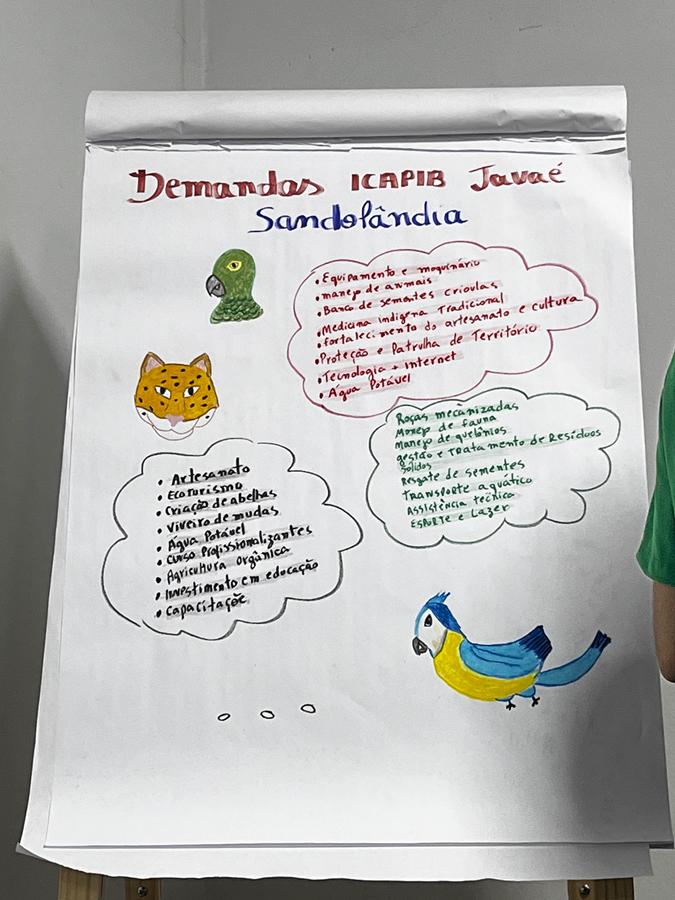 Demandas ICAPIB Javaé
Sandolândia
• Equipamento e moquinário
• manejo de animais
• Banco de sementes crioulas
• Medicina indígena Tradicional
• fortalecimento do artesanato e cultura
• Proteção e Patrulha de Território
• Tecnologia + Internet
• Água Potável
Roças mecanizadas
Manejo de fauna
Manejo de quelônios
gestão e Tratamento de Resíduos
Sólidos
Resgate de sementes
Transporte aquático
Assistência técnica
Esporte e Lazer
• Artesanato
• Ecoturismo
• Criação de abelhas
• Viveiro de mudas
• Água Potável
• Curso Profissionalizantes
• Agricultura orgânica
• Investimento em educação
• Capacitaçõe